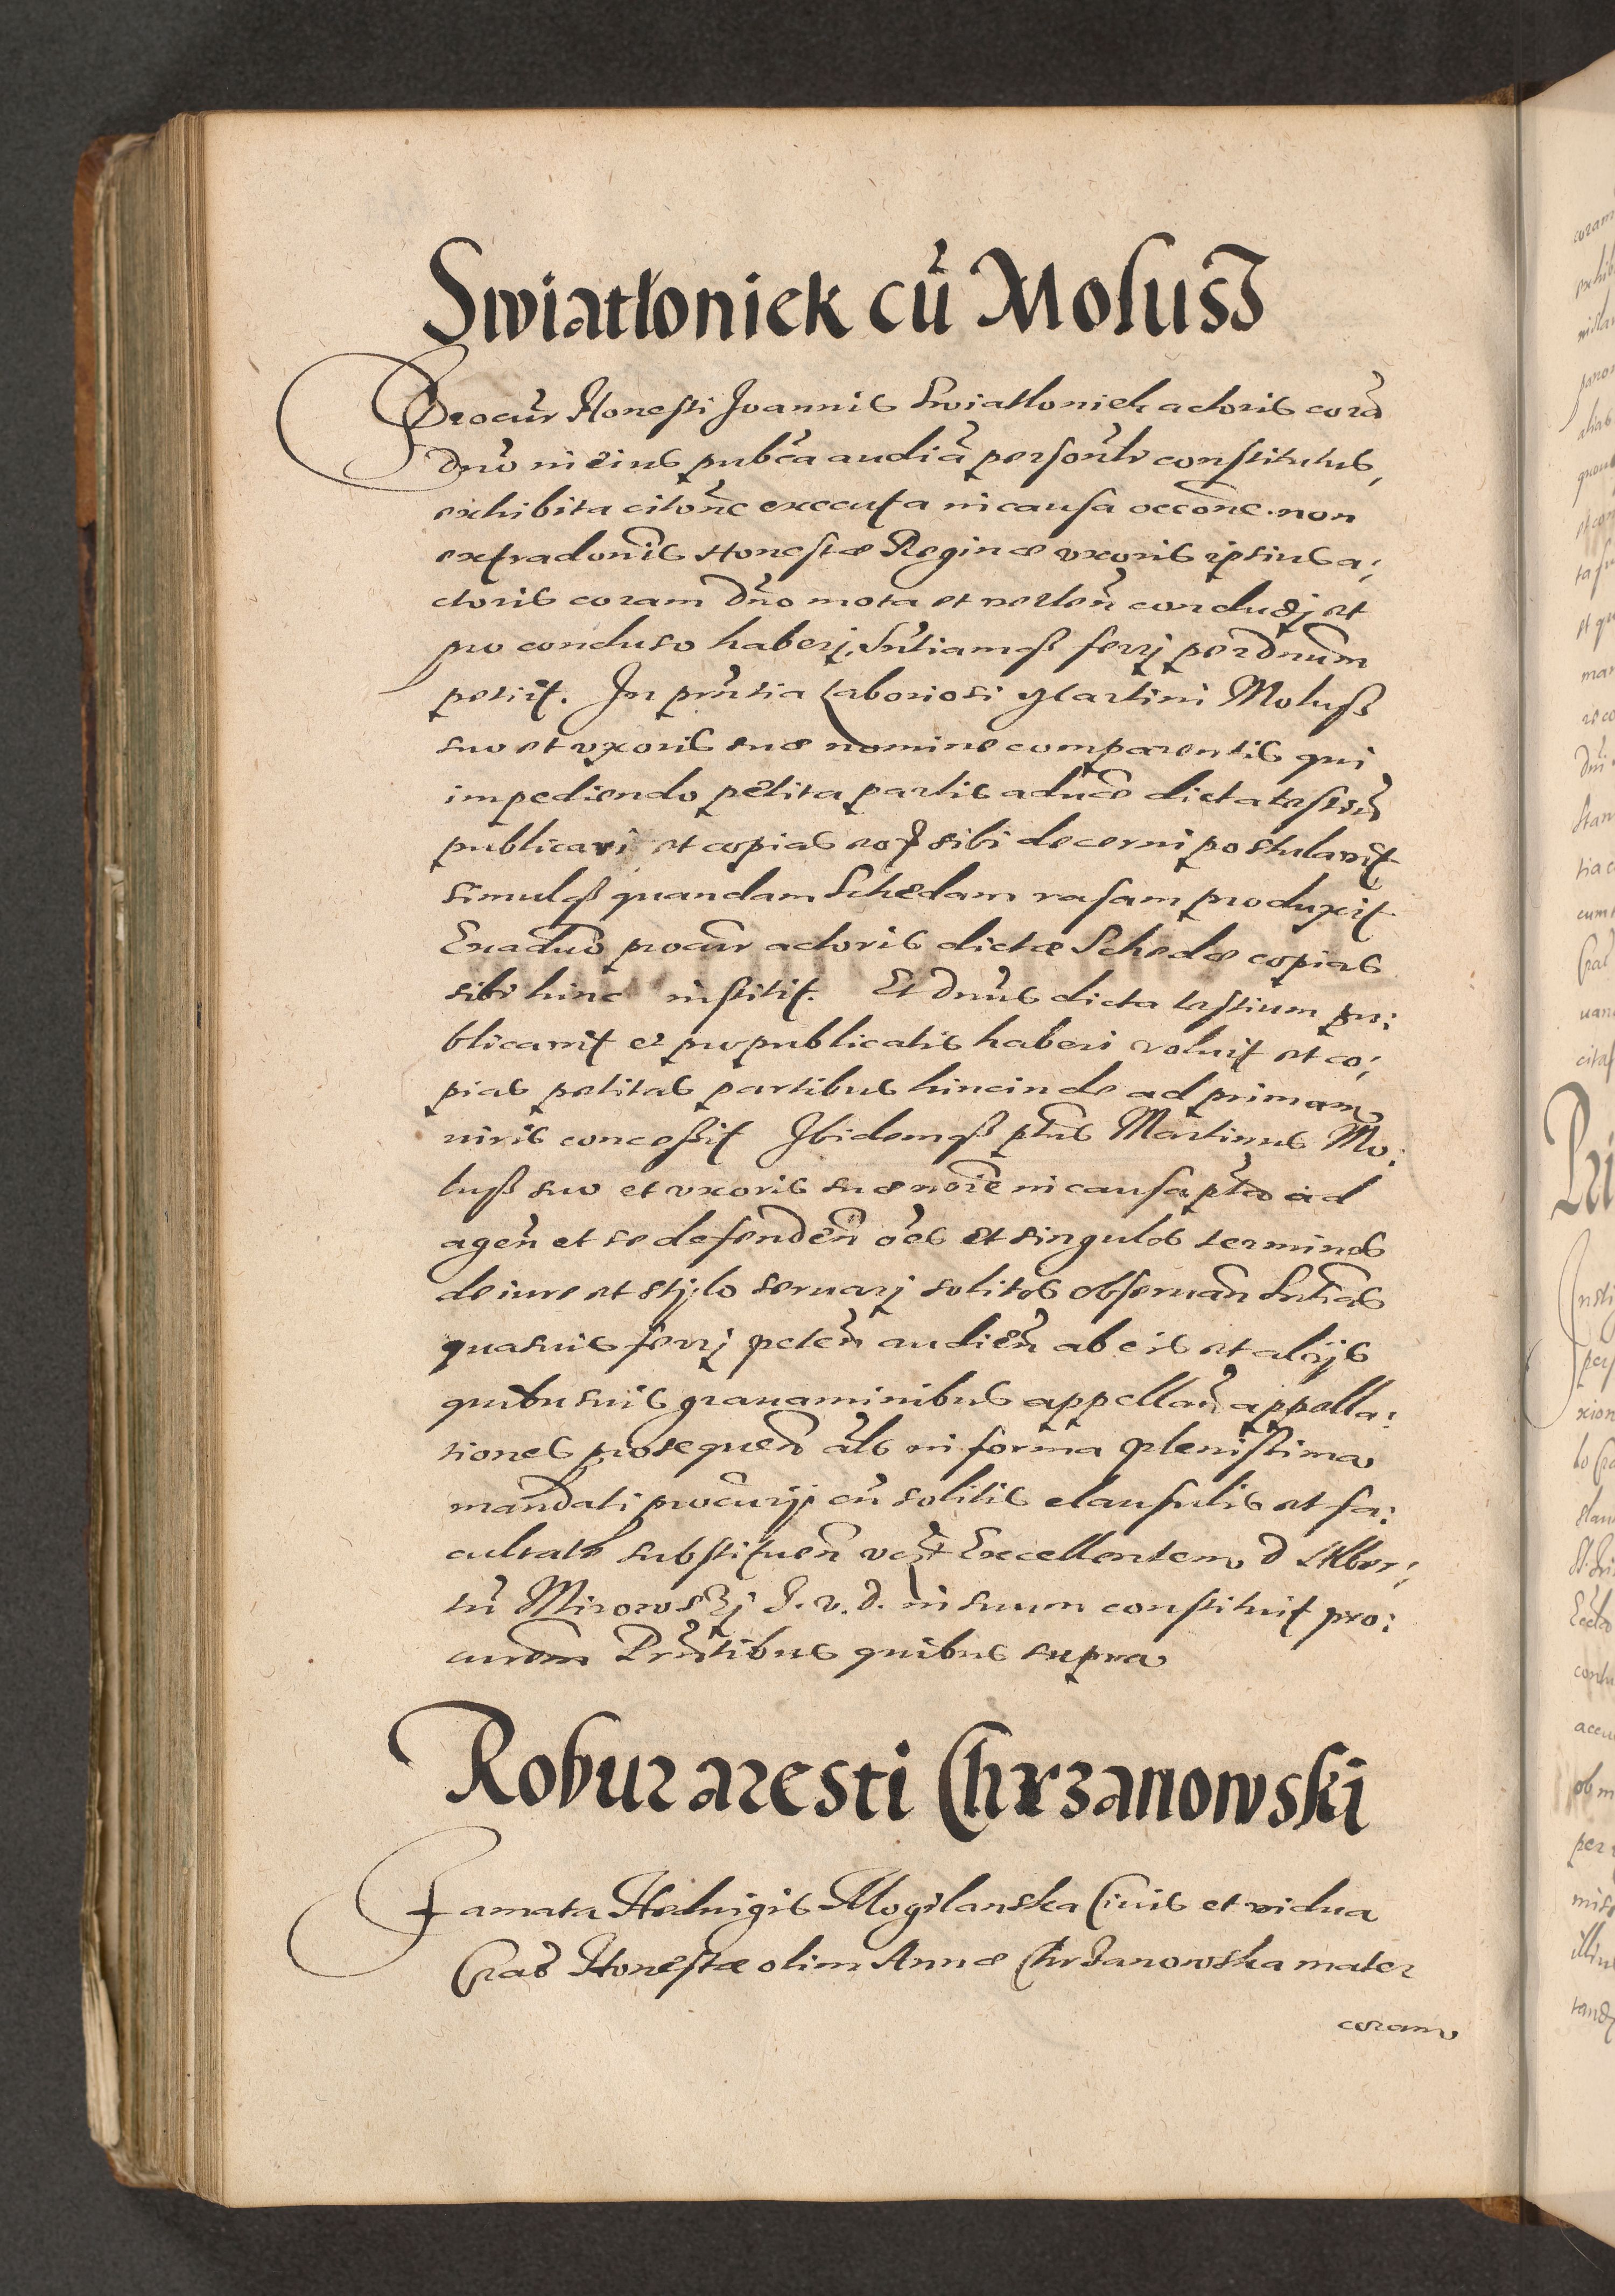 Swiatloniek cũ Molusz
Procur̃ Honesti Joannis Swiatloniek actoris corã
Dnõ in eius pubca audiã personlr constitutus,
exhibita citone executa in causa occone non
extradonis Honestæ Reginæ uxoris ipsius a:
ctoris coram Dno mota et verten concludj et
pro concluso haberj, Sntiamq3 ferrj per Dnum
petiit. In pnttia laboriosi Martini Molusz
suo et uxoris suæ nomine comparentis qui
impediendo petita partis aduersæ dicta testiũ
publicari et copias eor sibi decerni postulauit
simulq3 quandam Schedam rasam produxit
Ex aduõ procur actoris dictæ Schedæ copias
sibi hinc institit. Et Dnus dicta testium pu:
blicauit et pro publicatis haberi voluit et co:
pias petitas partibus hincinde ad primam
iuris concessit Ibidemq3 ptus Martinus Mo:
lusz suo et uxoris suæ noie in causa pta ad
agen et se defenden oes et singulos terminos
de iure et stylo seruarj solitos obseruan Sntias
quasuis ferrj peten audien ab eis et alijs
quibusuis grauaminibus appellan appella:
tiones prosequen als in forma plenissima
mandati procurij cũ solitis clausulis et fa:
cultate substituen vczt Excellentem D Alber:
tũ Mirowskj J. V. D. in suum constituit pro:
curem Pntibus quibus supra
Robur aresti Chrzanowski
Famata Hedvigis Mogilanska Ciuis et vidua
Crac Honestæ olim Annæ Chrzanowska mater
coram